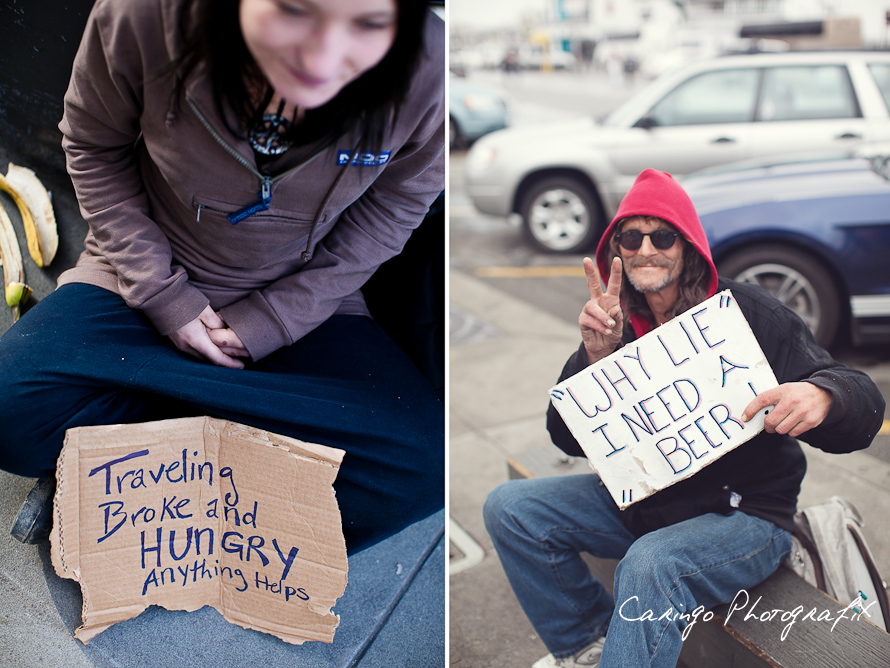 Traveling
Broke and
HUNGRY
Anything Helps
"WHY LIE"
I NEED A
BEER!
"
Caringo Photografix